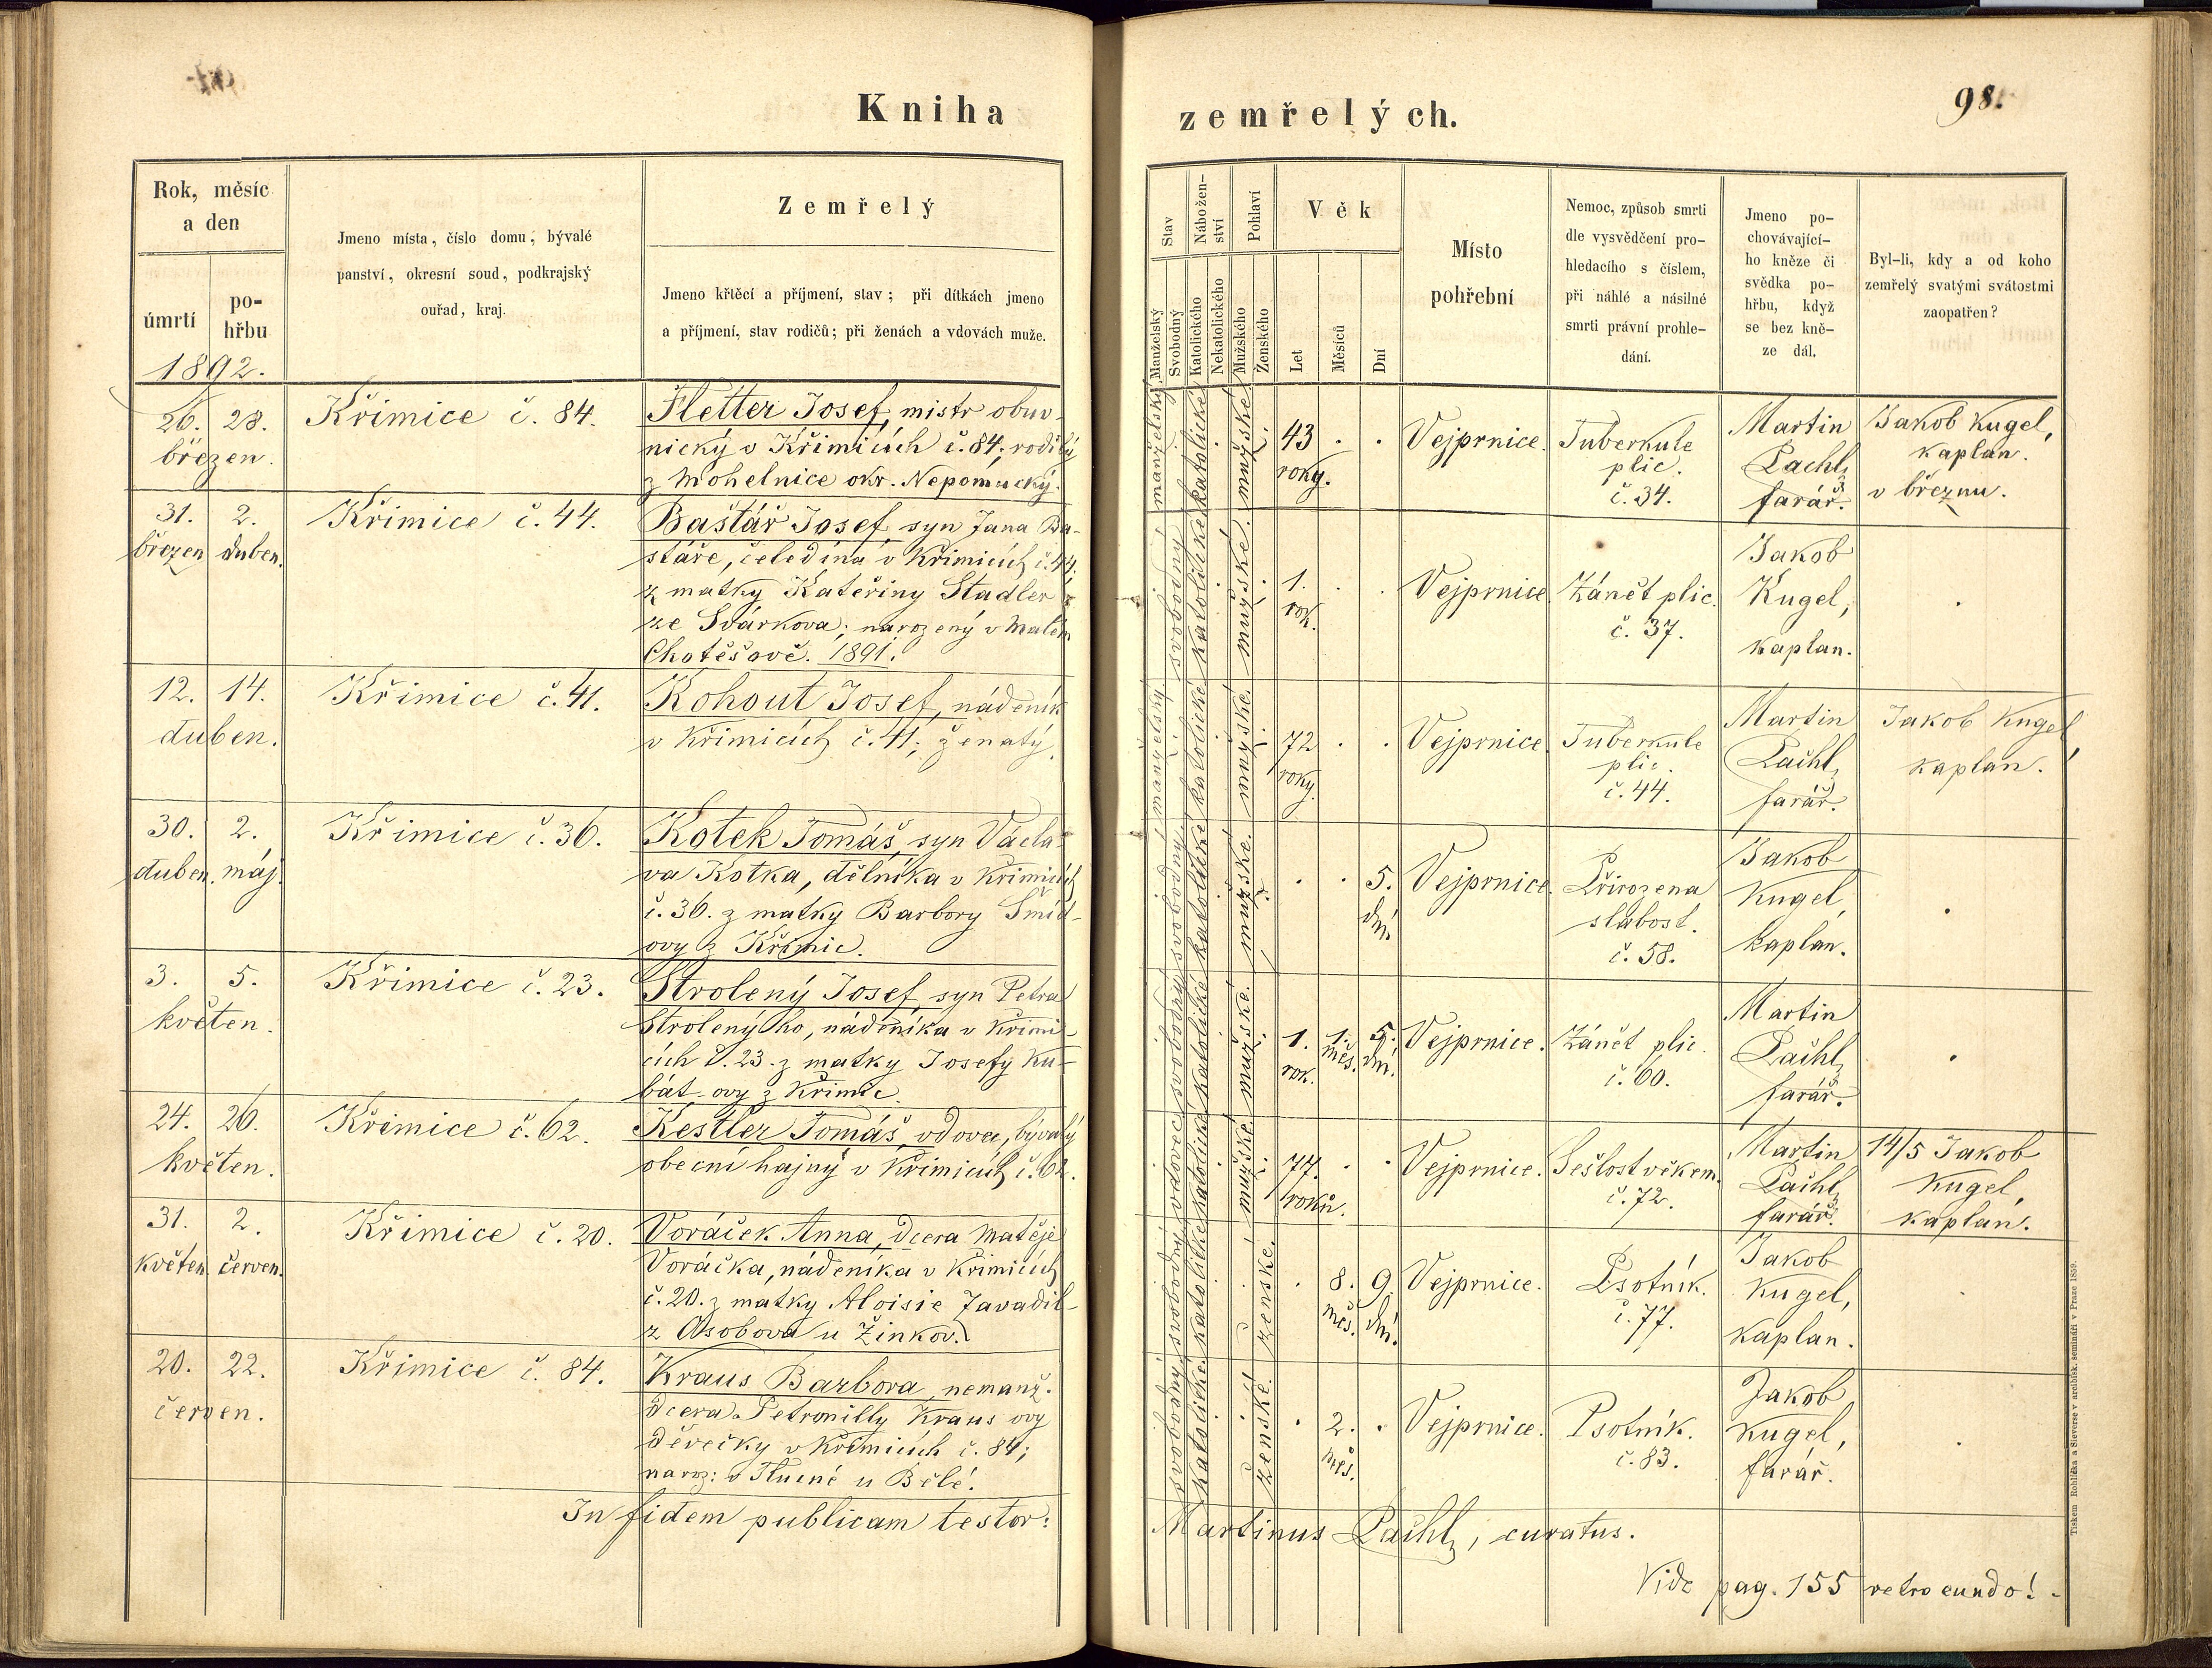 Kniha
zemřelých.
98.
Rok, měsíc
a den
úmrtí
po-
hřbu
1892.
Jmeno místa, číslo domu, bývalé
panství, okresní soud, podkrajský
ouřad, kraj.
Zemřelý
Jmeno křtěcí a příjmení, stav; při dítkách jmeno
a příjmení, stav rodičů; při ženách a vdovách muže.
Stav
Nábožen-
ství
Pohlaví
Manželský
Svobodný
Katolického
Nekatolického
Mužského
Ženského
Věk
Let
Měsíců
Dní
Místo
pohřební
Nemoc, způsob smrti
dle vysvědčení pro-
hledacího s číslem,
při náhlé a násilné
smrti právní prohle-
dání.
Jmeno po-
chovávající-
ho kněze či
svědka po-
hřbu, když
se bez kně-
ze dál.
Byl-li, kdy a od koho
zemřelý svatými svátostmi
zaopatřen?
26. 28.
březen.
Křimice č. 84.
Fletter Josef, mistr obuv-
nický v Křimicích č. 84; rodilý
z Mohelnice okr. Nepomucký.
manželský
katolické
mužské
43
roky.
Vejprnice.
Tuberkule
plic.
č. 34.
Martin
Pachl,
farář.
Jakob Kugel,
kaplan.
v březnu.
31. 2.
březen duben.
Křimice č. 44.
Baštář Josef, syn Jana Ba-
štáře, čeledína v Křimicích č. 44.
z matky Kateřiny Stadler
ze Svárkova; narozený v Malém
Chotěšově. 1891.
svobodný
katolické
mužské.
1.
rok.
Vejprnice.
Zánět plic.
č. 37.
Jakob
Kugel,
kaplan.
12. 14.
duben.
Křimice č. 41.
Kohout Josef, nádeník
v Křimicích č. 41; ženatý.
manželský
katolické
mužské.
72
roky.
Vejprnice.
Tuberkule
plic.
č. 44.
Martin
Pachl,
farář.
Jakob Kugel,
kaplan.
30. 2.
duben. máj.
Křimice č. 36.
Kotek Tomáš, syn Václa-
va Kotka, dělníka v Křimicích
č. 36. z matky Barbory Šmíd-
ovy z Křimic.
svobodný
katolické
mužské.
5.
dní
Vejprnice.
Přirozena
slabost.
č. 58.
Jakob
Kugel,
kaplan.
3. 5.
květen.
Křimice č. 23.
Strolený Josef, syn Petra
Strolenýho, nádeníka v Křimi-
cích č. 23. z matky Josefy Ku-
bát-ovy z Křimic.
svobodný
katolické
mužské.
1.
rok.
1.
měs.
5.
dní.
Vejprnice.
Zánět plic.
č. 60.
Martin
Pachl,
farář.
24. 26.
květen.
Křimice č. 62.
Kestler Tomáš, vdovec, bývalý
obecní hajný v Křimicích č. 62.
vdovec
katolické
mužské
77.
roků.
Vejprnice.
Sešlost věkem.
č. 72.
Martin
Pachl,
farář.
14/5 Jakob
Kugel,
kaplan.
31. 2.
květen. červen.
Křimice č. 20.
Voráček Anna, dcera Matěje
Voráčka, nádeníka v Křimicích
č. 20. z matky Aloisie Zavadil-
z Osobova u Žinkov.
svobodný
katolické
ženské.
8.
měs.
9.
dní.
Vejprnice.
Psotník.
č. 77.
Jakob
Kugel,
kaplan.
20. 22.
červen.
Křimice č. 84.
Kraus Barbora, nemanž.
dcera Petronilly Kraus ovy
děvečky v Křimicích č. 84;
naroz: v Tlucné u Bělé.
svobodný
katolické.
ženské.
2.
měs.
Vejprnice.
Psotník.
č. 83.
Jakob
Kugel,
farář.
In fidem publicam testor:
Martinus Pachl, curatus.
Vide pag. 155 retro eundo!
Tiskem Rohlíčka a Sieverse v arcibisk. semináři v Praze 1859.